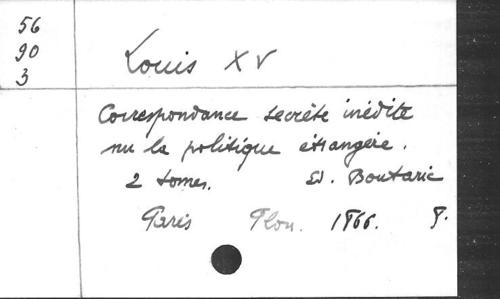 56
90
3
Louis XV
Correspondance secrète inédite
sur la politique étrangère.
2 tomes. Ed. Boutaric
Paris Plon. 1866. 8.